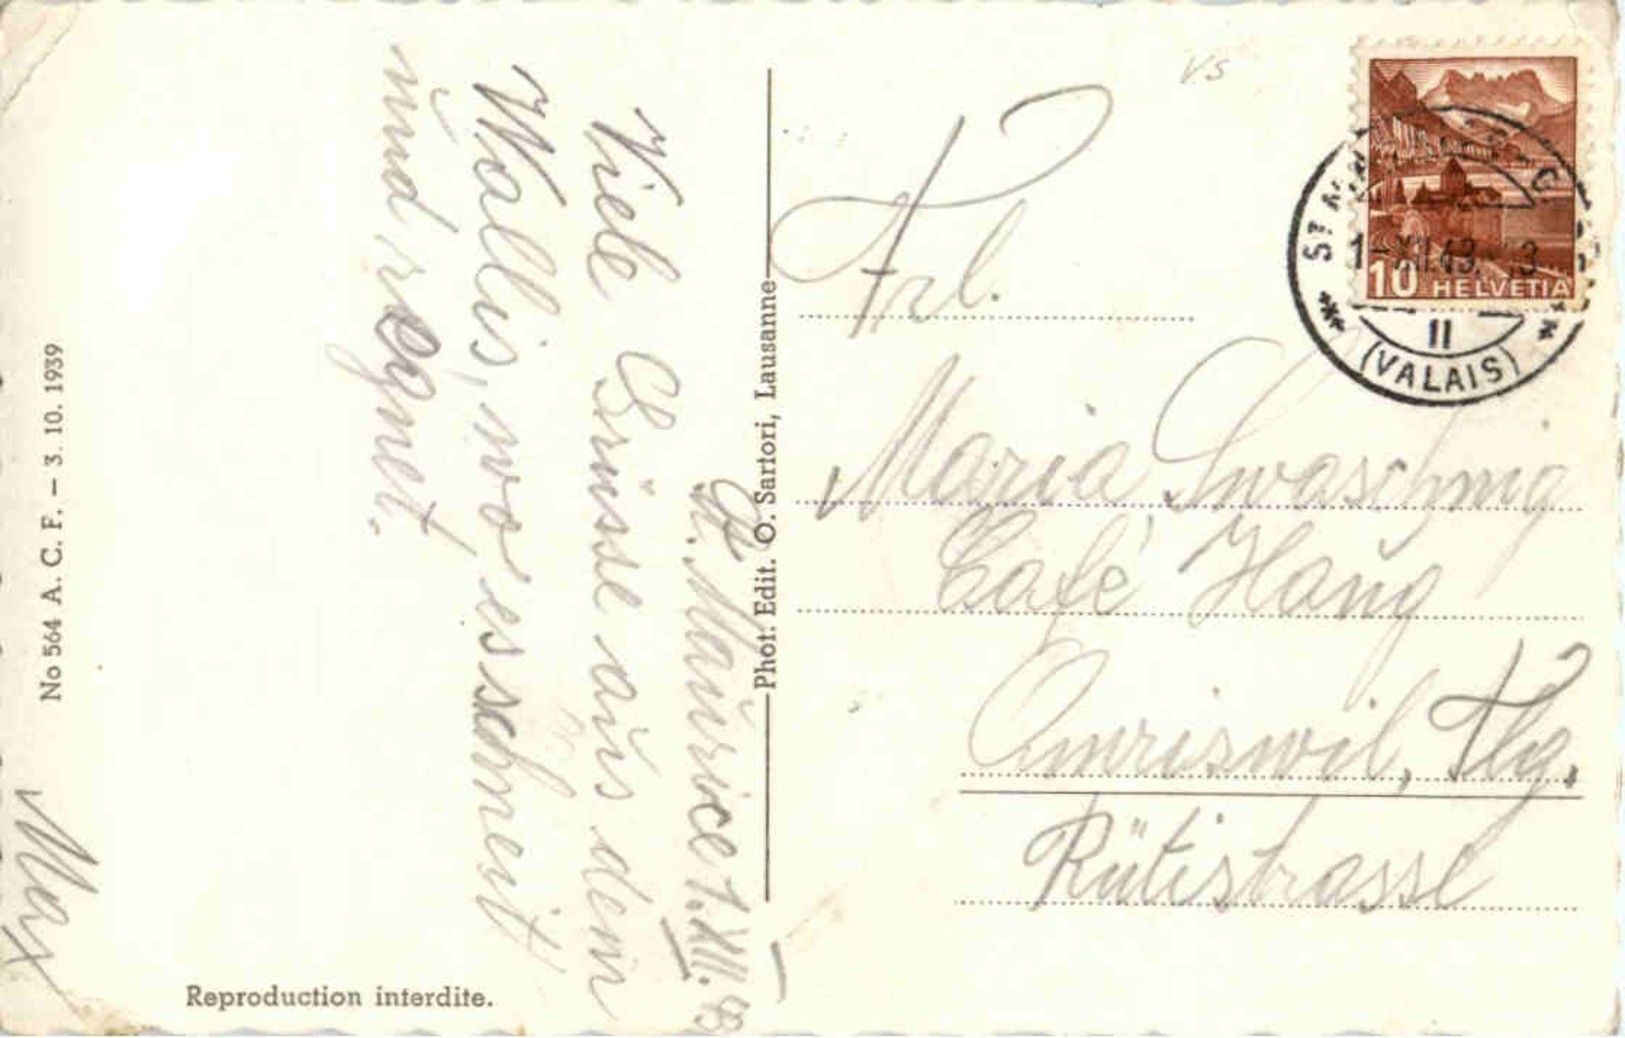 St. Maurice 1.XII.43
Viele Grüsse aus dem
Wallis, wo es schneit
und regnet.
Max
No 564 A. C. F. – 3. 10. 1939
Reproduction interdite.
Phot: Edit. O. Sartori, Lausanne
VS
Frl.
Maria
Café Haug
Amriswil, Thg.
Rütistrasse
10 HELVETIA
ST
1-XII.43.
II
(VALAIS)